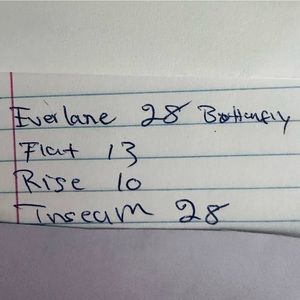 Everlane 28 Buttonfly
Flat 13
Rise 10
Inseam 28